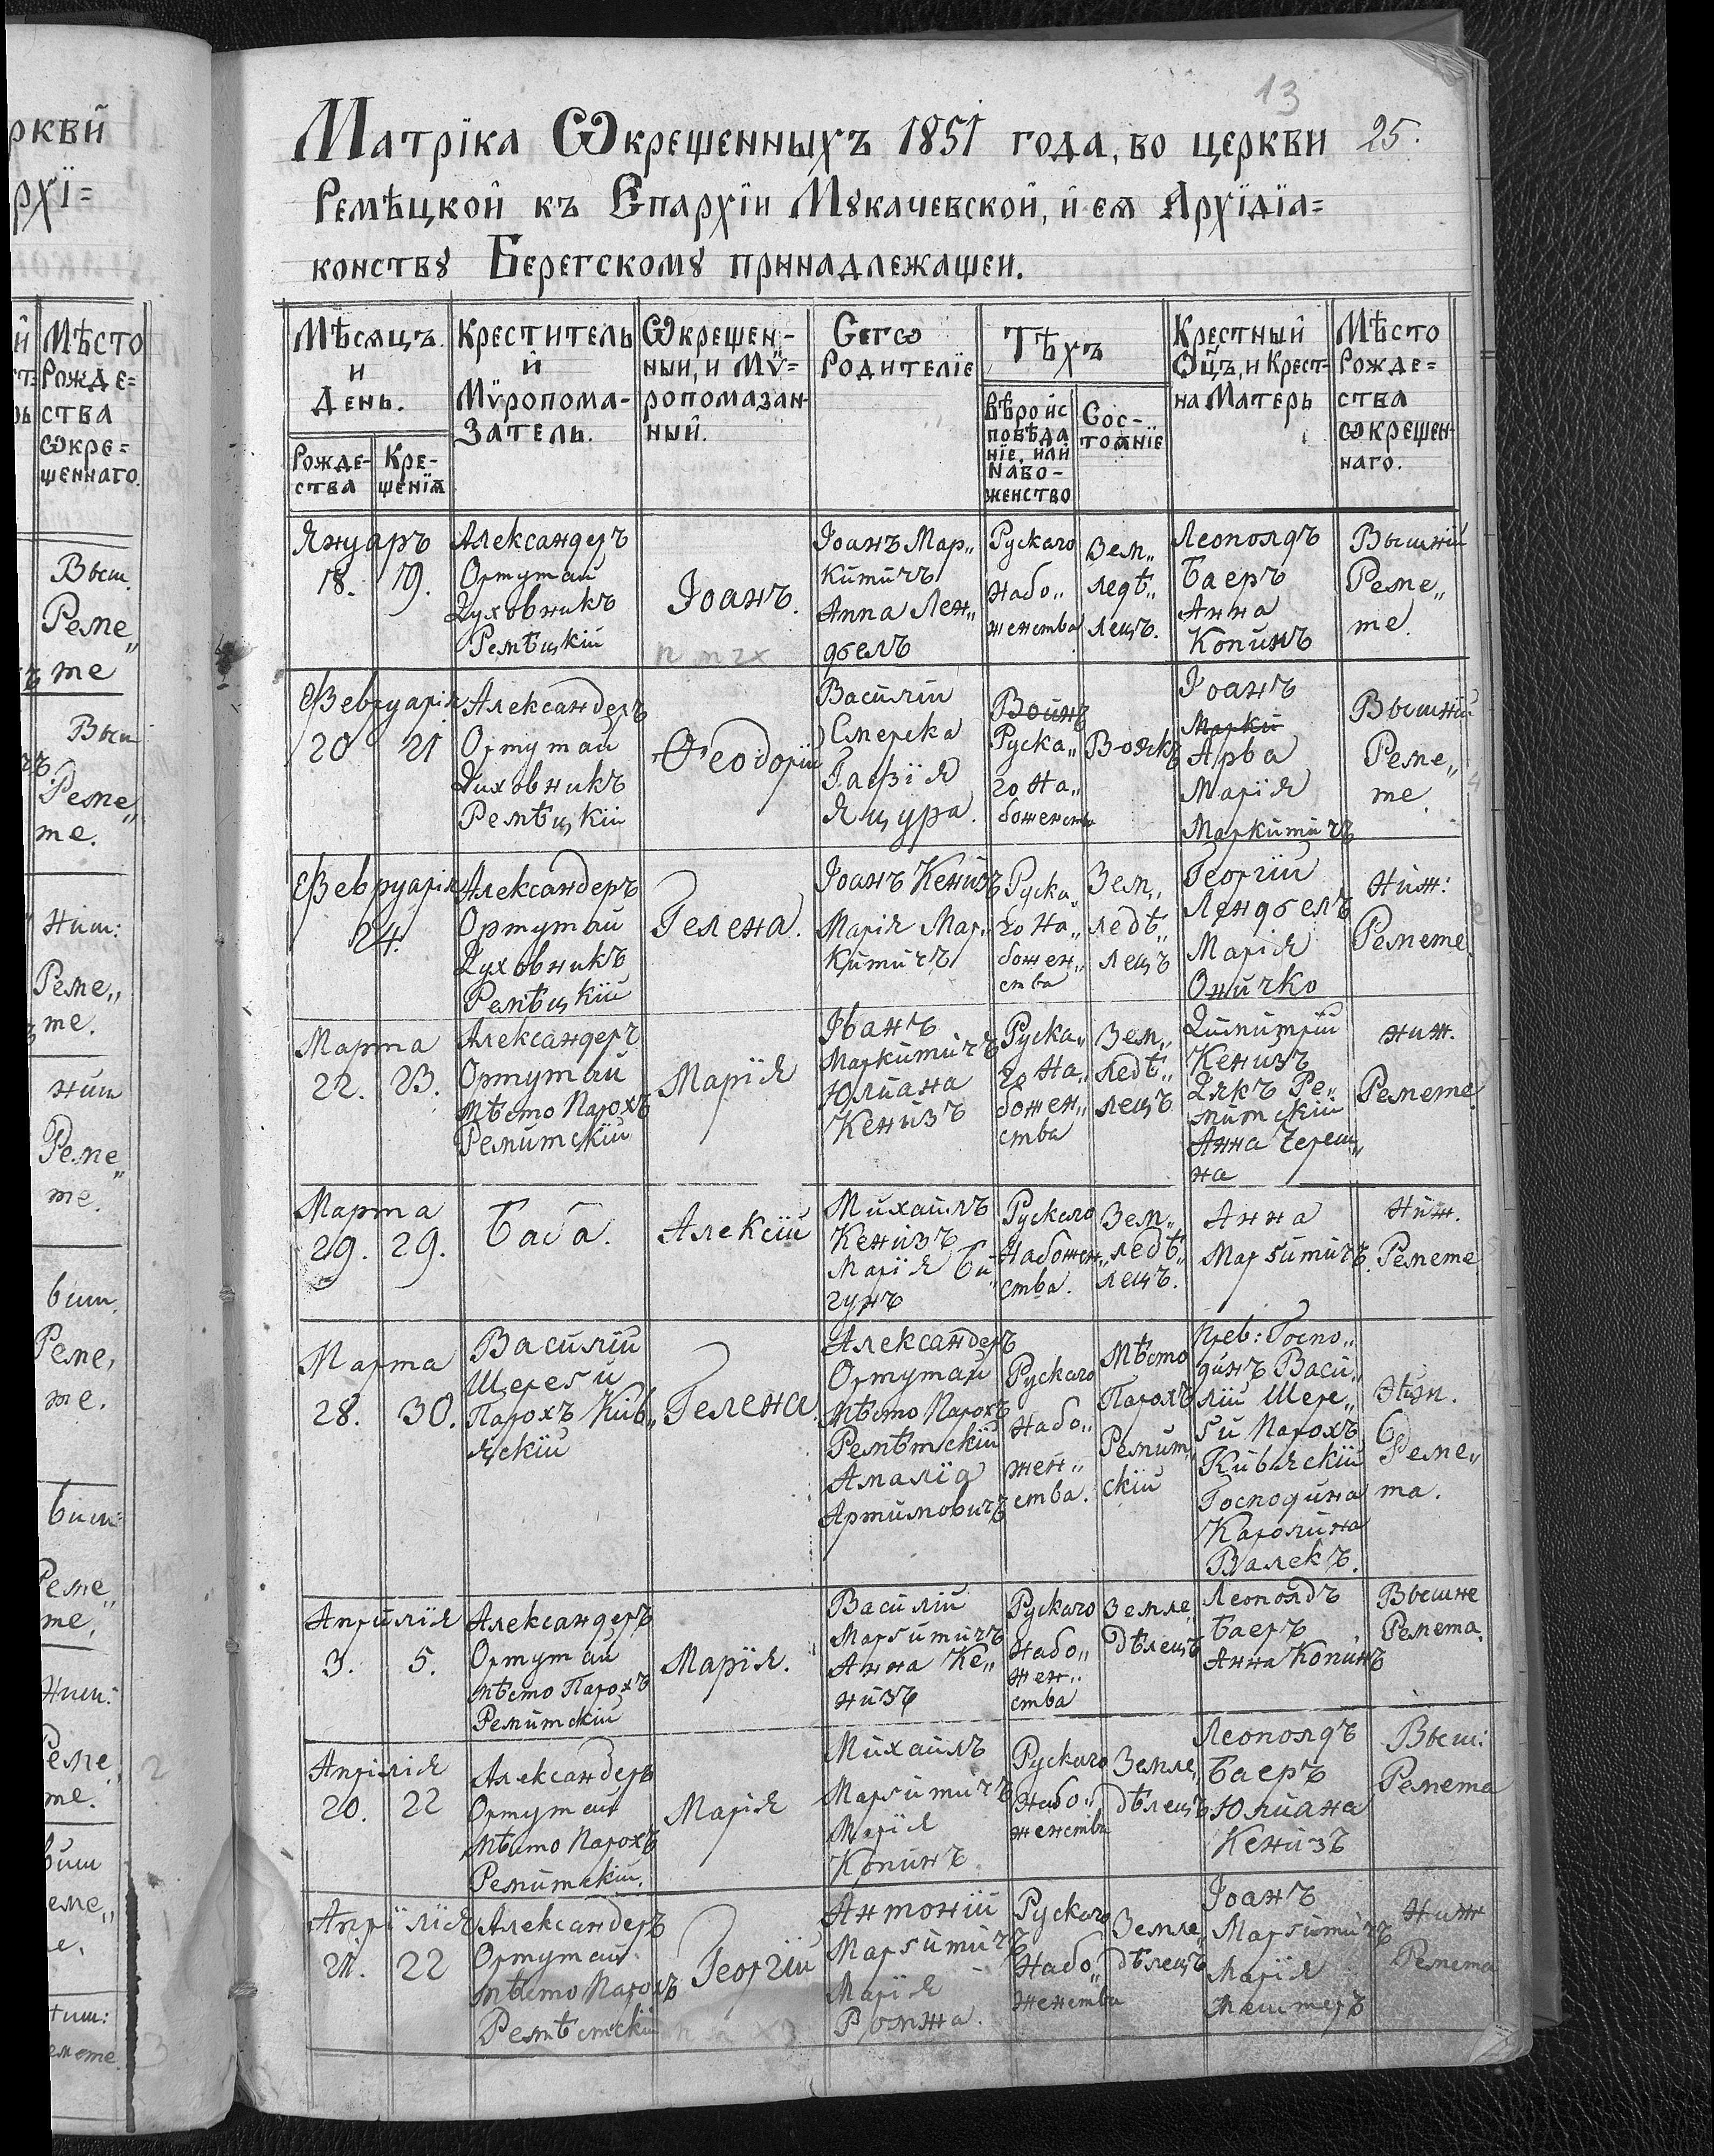 13
Матріка Ѡкрещенныхъ 1851 года, во церкви 25.
Ремѣцкой къ Епархіи Мꙋкачевской, и ея Архідіа=
конствꙋ Берегскомꙋ принадлежащеи.
Мѣсяцъ
и
День.
Рожде-
ства
Кре-
щенія
Креститель
и
Мѵропома-
затель.
Ѡкрещен-
ный, и Мѵ-
ропомазан-
ный.
Сегѡ
Родителіе
Тѣхъ
вѣроис
повѣда
ніе, или
Набо-
женство
Сос-
тоѧніе
Крестный
Ѻц҃ъ, и Крест-
на Матерь
Мѣсто
Рожде=
ства
ѡкрещен-
наго.
Януаръ
18. 19.
Александеръ
Ортутай
Духовникъ
Ремѣцкій
Іоанъ.
Іоанъ Мар„
китичъ
Анна Лен„
дєлъ
Рускаго
Набо„
женства
Зем„
ледѣ„
лецъ.
Леополдъ
Баеръ
Анна
Копинъ
Вышній
Реме„
те.
Февруарія
20 21
Александеръ
Ортутай
Духовникъ
Ремѣцкій
Ѳеодорій
Василій
Смерека
Гафія
Яцура.
Воинъ
Руска„
го На„
боженств
Воякъ
Іоанъ
Марки
Арва
Марія
Маркитичъ
Вышній
Реме„
те.
Февруарія
24.
Александеръ
Ортутай
Духовникъ
Ремѣцкій
Гелена.
Іоанъ Кенизъ
Марія Мар„
китичъ
Руска„
го На„
божен„
ства
Зем„
ледѣ„
лецъ
Георгій
Лендєлъ
Марія
Оничко
Ниж:
Ремете.
Марта
22. 23.
Александеръ
Ортутай
Мѣсто Парохъ
Ремитскій
Марія
Іванъ
Маркитичъ
Юлиана
Кенизъ
Руска„
го На„
божен„
ства
Зем„
ледѣ„
лецъ
Димитрій
Кенизъ
Дякъ Ре„
митскій
Анна Череш„
на
Ниж.
Ремете.
Марта
29. 29.
Баба.
Алексій
Михаилъ
Кенизъ
Марія Би„
гунъ
Рускаго
Набожен„
ства.
Зем„
ледѣ„
лецъ.
Анна
Маргитичъ.
Ниж.
Ремете.
Марта
28. 30.
Василій
Щереги
Парохъ Кив„
яскій
Гелена
Александеръ
Ортутай
Мѣсто Парохъ
Ремѣтскій
Амалія
Артимовичъ
Рускаго
Набо„
жен„
ства.
Мѣсто
Парохъ
Ремит„
скій
Прев: Госпо„
динъ Васи„
лій Щере„
ги Парохъ
Кивяскій
Господина
Каролина
Валекъ.
Ниж.
Реме„
та.
Априлія
3. 5.
Александеръ
Ортутай
Мѣсто Парохъ
Ремитскій
Марія.
Василій
Маргитичъ
Анна Ке„
низъ
Рускаго
Набо„
жен„
ства
Земле„
дѣлецъ
Леополдъ
Баеръ
Анна Копинъ
Вышне
Ремета.
Апрілія
20. 22
Александеръ
Ортутай
Мѣсто Парохъ
Ремитскій.
Марія
Михаилъ
Маргитичъ
Марія
Копинъ.
Рускаго
Набо„
женства
Земле„
дѣлецъ
Леополдъ
Баеръ
Юлиана
Кенизъ
Выш:
Ремета
Апрілія
21. 22
Александеръ
Ортутай
Мѣсто Парохъ
Ремѣтскій
Георгій
Антоній
Маргитичъ
Марія
Ромжа.
Рускаго
Набо„
женства
Земле„
дѣлецъ
Іоанъ
Маргитичъ
Марія
Маштеръ
Ниж
Ремета